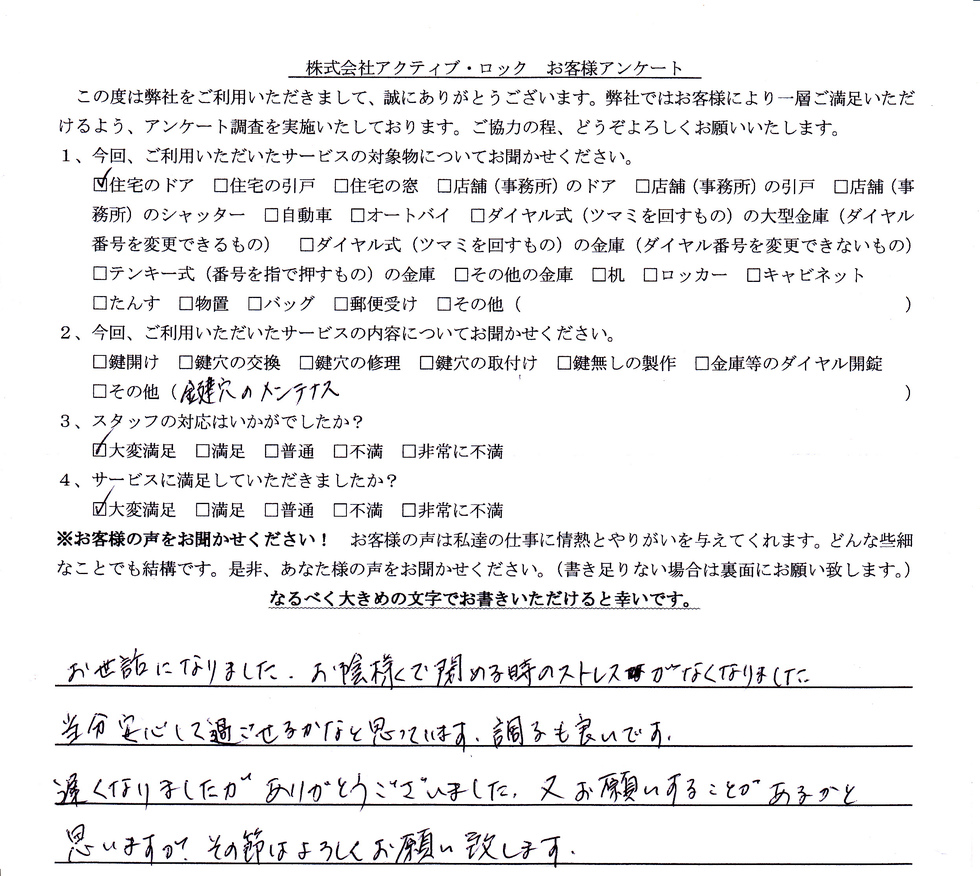 株式会社アクティブ・ロック　お客様アンケート
この度は弊社をご利用いただきまして、誠にありがとうございます。弊社ではお客様により一層ご満足いただ
けるよう、アンケート調査を実施いたしております。ご協力の程、どうぞよろしくお願いいたします。
１、今回、ご利用いただいたサービスの対象物についてお聞かせください。
☑住宅のドア　□住宅の引戸　□住宅の窓　□店舗（事務所）のドア　□店舗（事務所）の引戸　□店舗（事
務所）のシャッター　□自動車　□オートバイ　□ダイヤル式（ツマミを回すもの）の大型金庫（ダイヤル
番号を変更できるもの）　□ダイヤル式（ツマミを回すもの）の金庫（ダイヤル番号を変更できないもの）
□テンキー式（番号を指で押すもの）の金庫　□その他の金庫　□机　□ロッカー　□キャビネット
□たんす　□物置　□バッグ　□郵便受け　□その他（　　　）
２、今回、ご利用いただいたサービスの内容についてお聞かせください。
□鍵開け　□鍵穴の交換　□鍵穴の修理　□鍵穴の取付け　□鍵無しの製作　□金庫等のダイヤル開錠
□その他（鍵穴のメンテナス　　　）
３、スタッフの対応はいかがでしたか？
☑大変満足　□満足　□普通　□不満　□非常に不満
４、サービスに満足していただきましたか？
☑大変満足　□満足　□普通　□不満　□非常に不満
※お客様の声をお聞かせください！　お客様の声は私達の仕事に情熱とやりがいを与えてくれます。どんな些細
なことでも結構です。是非、あなた様の声をお聞かせください。（書き足りない場合は裏面にお願い致します。）
なるべく大きめの文字でお書きいただけると幸いです。
お世話になりました。お陰様で閉める時のストレスがなくなりました
当分安心して過ごせるかなと思っています。調子も良いです。
遅くなりましたがありがとうございました。又お願いすることがあるかと
思いますが、その節はよろしくお願い致します。